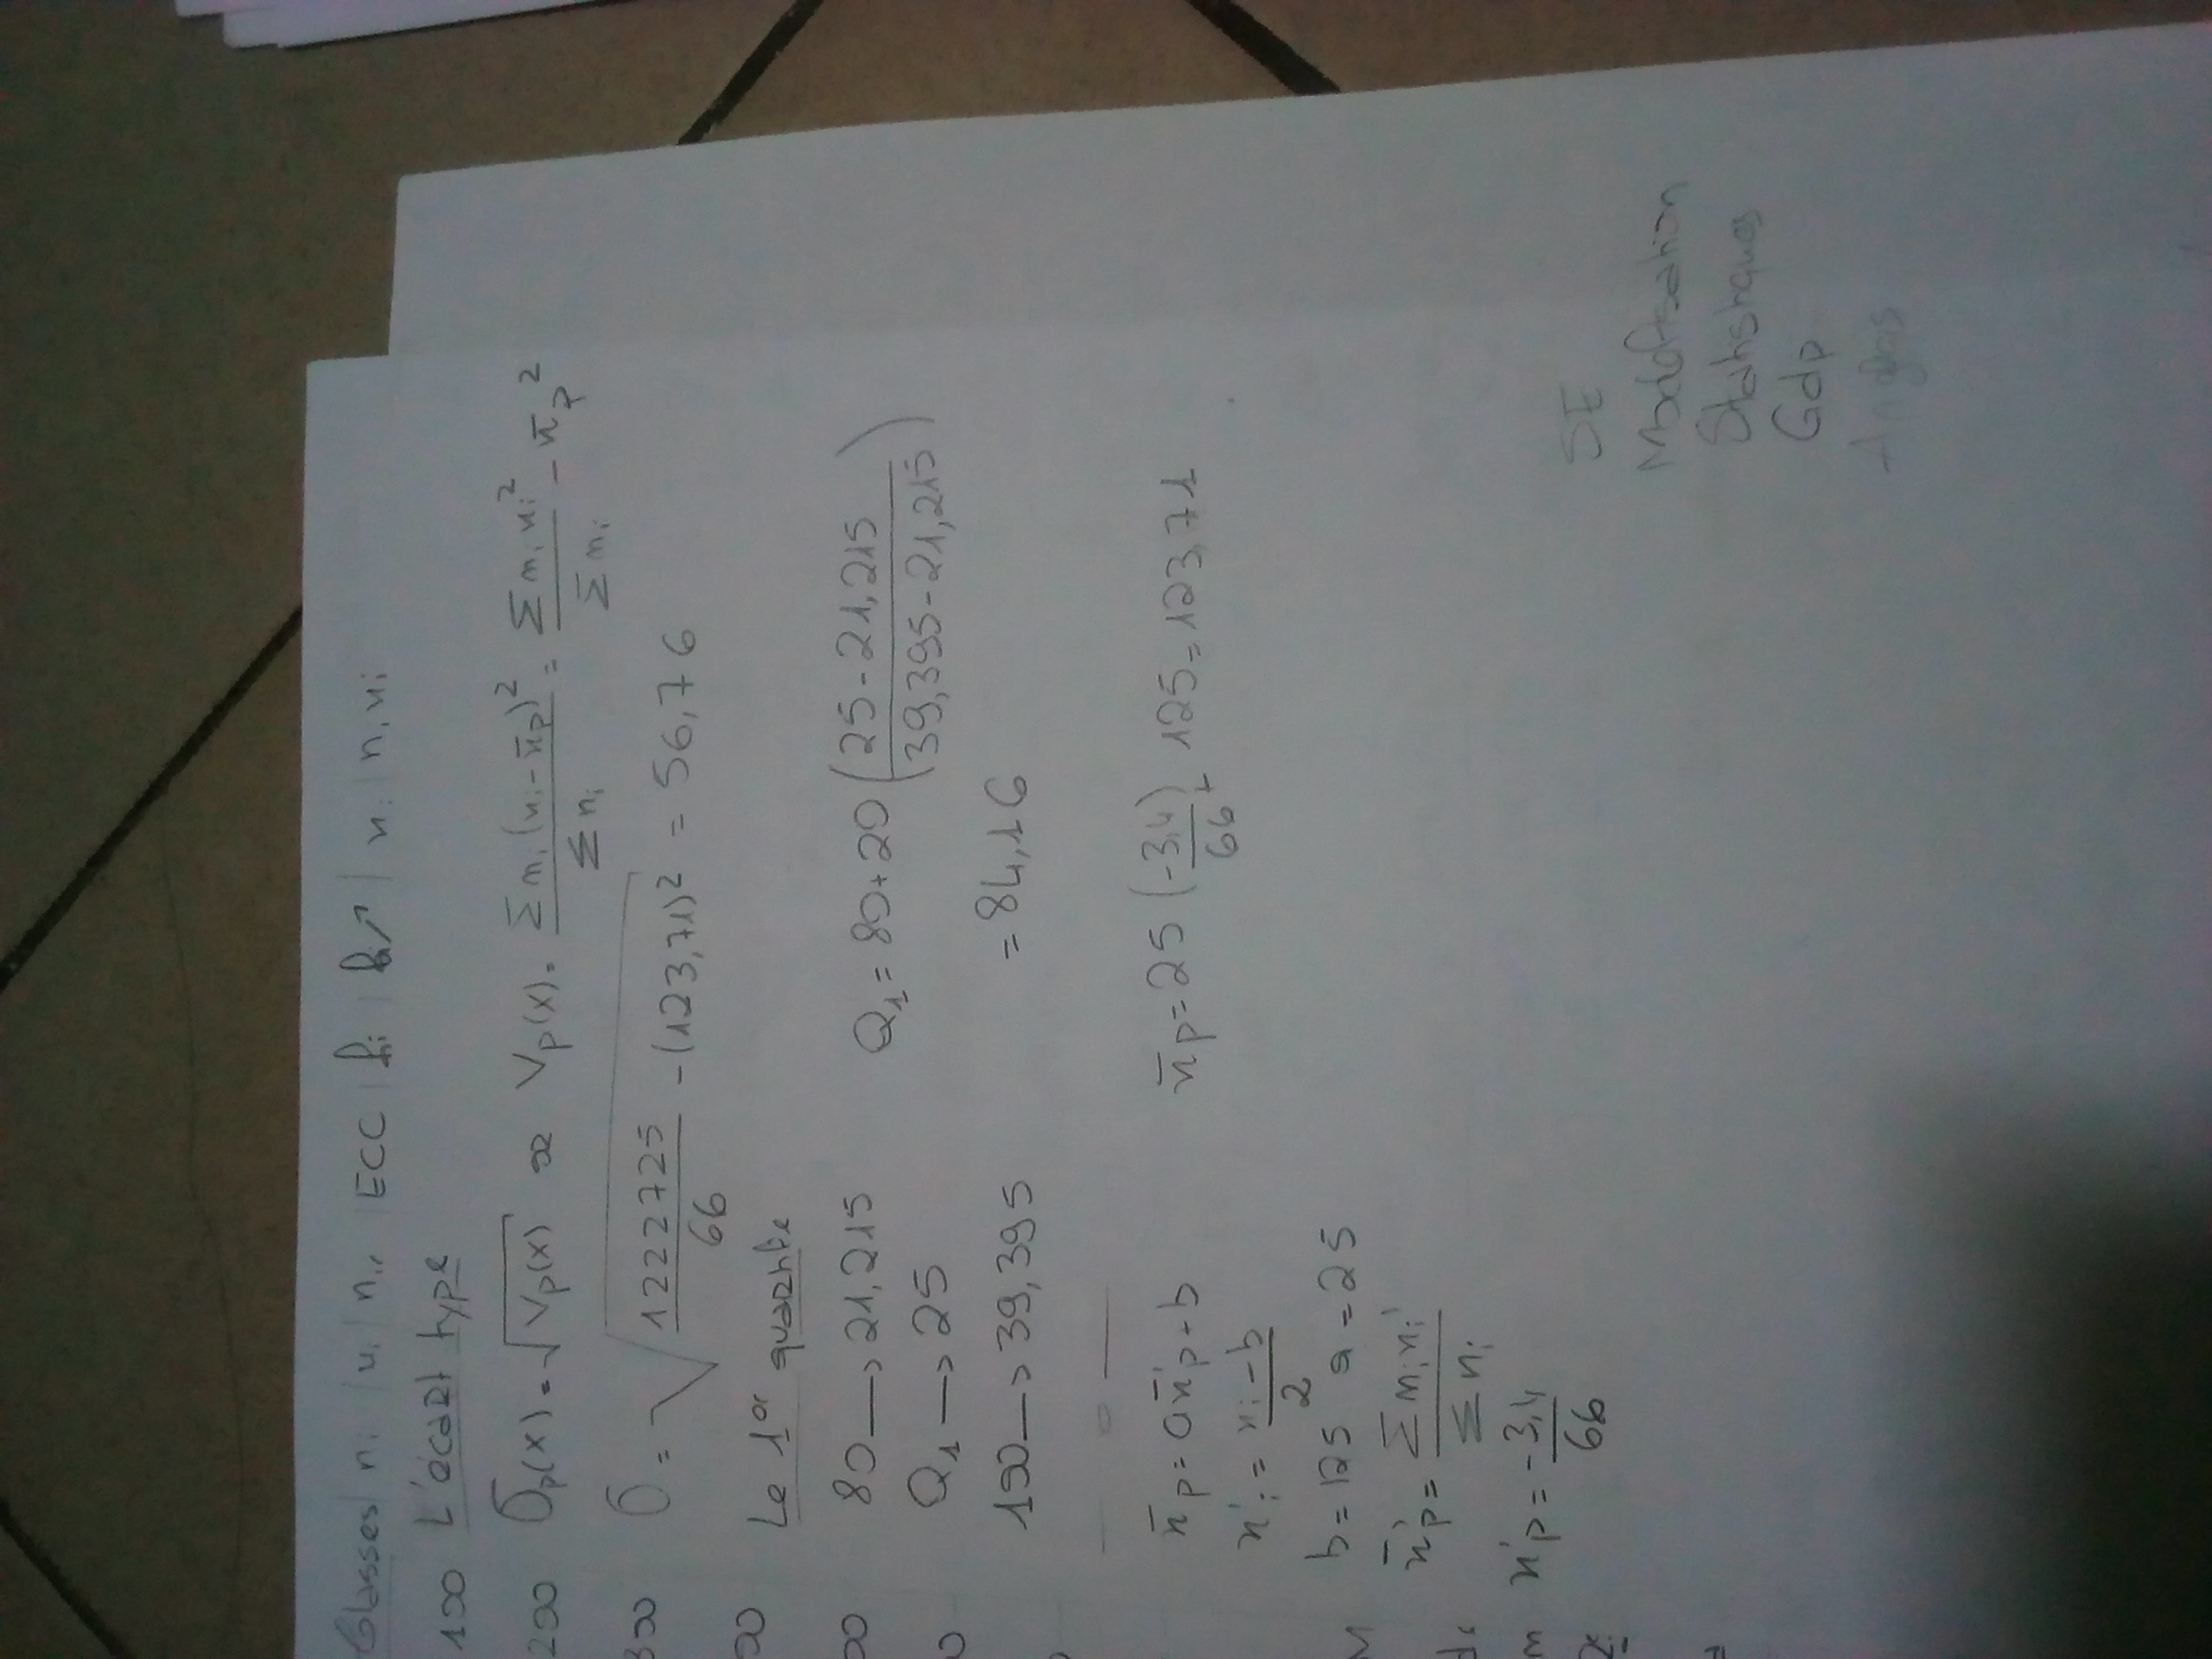 Classes | ni | xi | ni | ECC | fi | fi↗ | xi | nixi
100
L'écart type
200
σp(x) = √Vp(x) ∞ Vp(x) = Σ ni (xi - x̄p)² / Σ ni = Σ ni xi² / Σ ni - x̄p²
300
σ = √ 1222725 / 66 - (123,71)² = 56,76
Le 1er quartile
80 → 21,215
Q1 → 25
100 → 39,395
Q1 = 80 + 20 ( 25 - 21,215 / 39,395 - 21,215 )
= 84,16
x̄p = a x̄'p + b
x'i = xi - b / 2
b = 125 a = 25
x̄'p = Σ ni xi' / Σ ni
x'p = -3,4 / 66
x̄p = 25 ( -3,4 / 66 ) + 125 = 123,71
SE
Modélisation
Statistiques
Gdp
Anglais